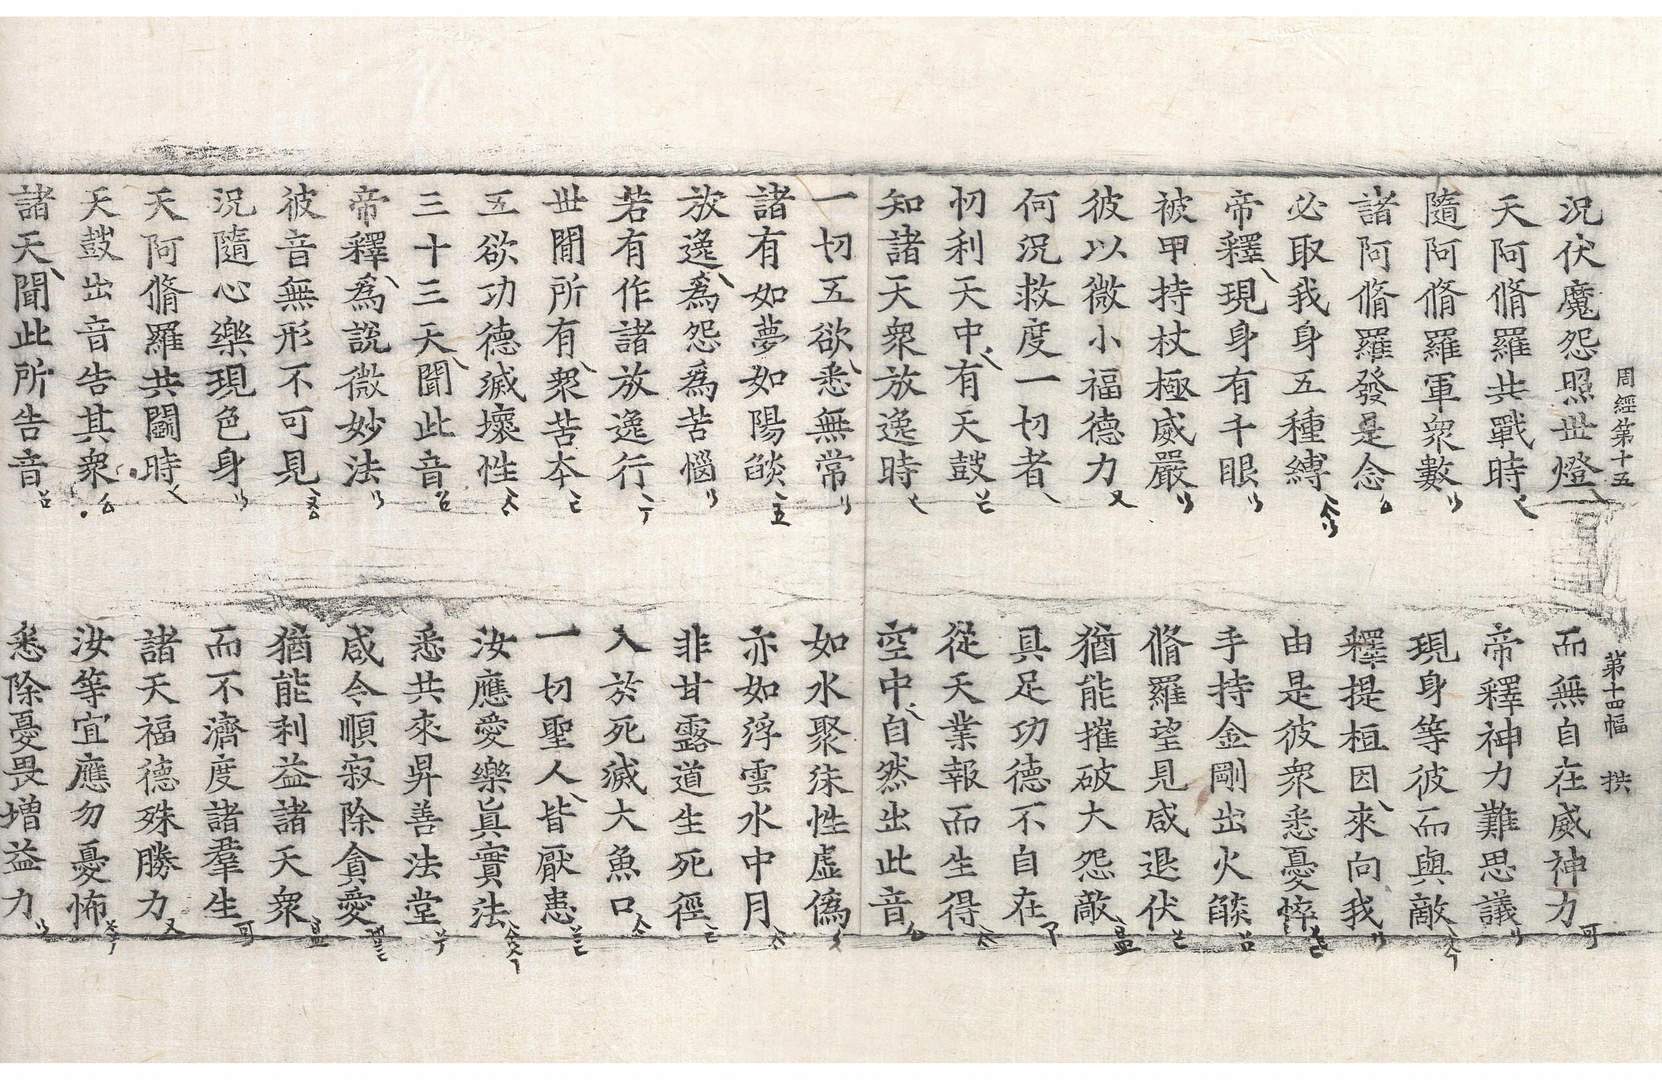 周經第十五 第十四幅 拱
況伏魔怨照世燈 而無自在威神力
天阿脩羅共戰時 帝釋神力難思議
隨阿脩羅軍衆數 現身等彼而與敵
諸阿脩羅發是念 釋提桓因來向我
必取我身五種縛 由是彼衆悉憂悴
帝釋現身有千眼 手持金剛出火燄
被甲持杖極威嚴 脩羅望見咸退伏
彼以微小福德力 猶能摧破大怨敵
何況救度一切者 具足功德不自在
忉利天中有天鼓 從天業報而生得
知諸天衆放逸時 空中自然出此音
一切五欲悉無常 如水聚沫性虛僞
諸有如夢如陽燄 亦如浮雲水中月
放逸爲怨爲苦惱 非甘露道生死徑
若有作諸放逸行 入於死滅大魚口
世間所有衆苦本 一切聖人皆厭患
五欲功德滅壞性 汝應愛樂眞實法
三十三天聞此音 悉共來昇善法堂
帝釋爲說微妙法 咸令順寂除貪愛
彼音無形不可見 猶能利益諸天衆
況隨心樂現色身 而不濟度諸羣生
天阿脩羅共鬪時 諸天福德殊勝力
天鼓出音告其衆 汝等宜應勿憂怖
諸天聞此所告音 悉除憂畏增益力